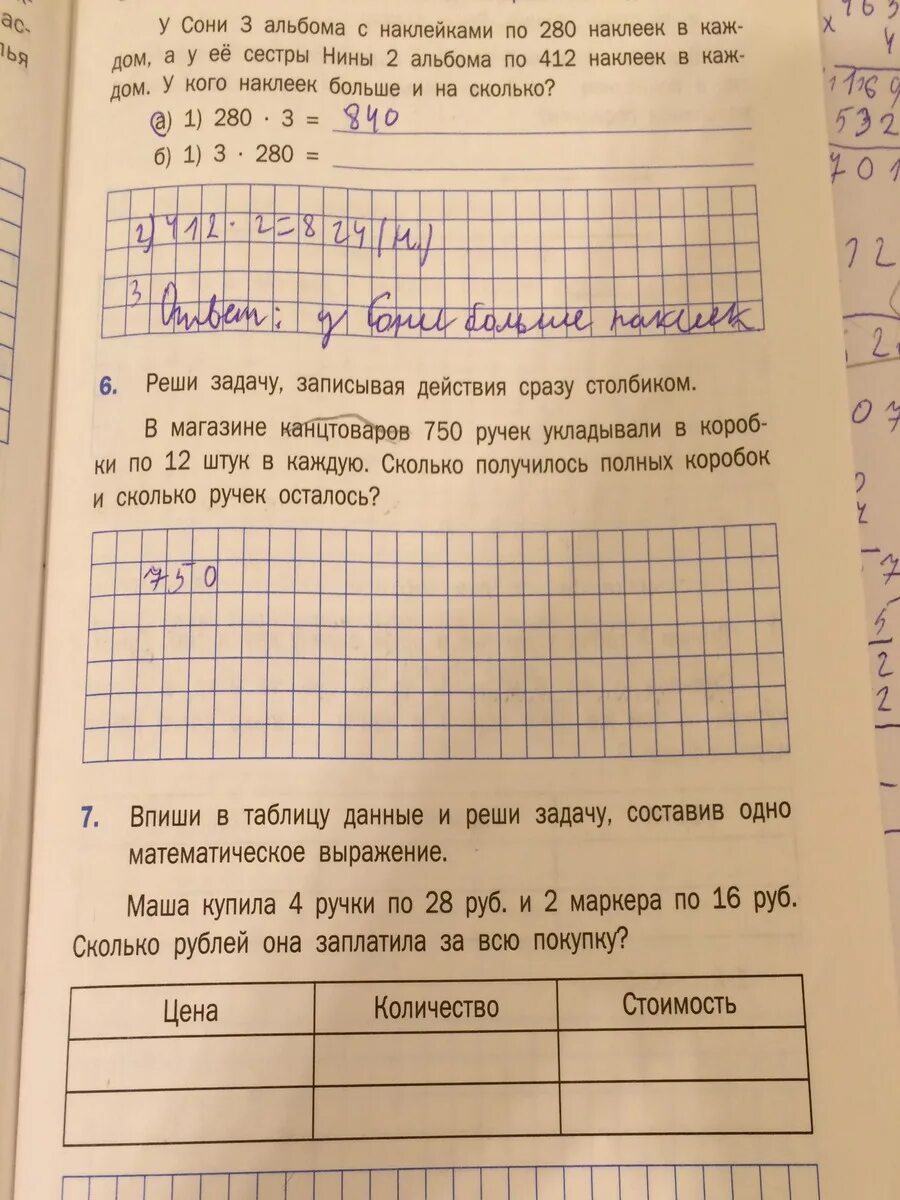 ас-
лья
У Сони 3 альбома с наклейками по 280 наклеек в каж-
дом, а у её сестры Нины 2 альбома по 412 наклеек в каж-
дом. У кого наклеек больше и на сколько?
а) 1) 280 · 3 = 840
б) 1) 3 · 280 =
2) 412 · 2 = 824 (н.)
3
Ответ: у Сони больше наклеек
6. Реши задачу, записывая действия сразу столбиком.
В магазине канцтоваров 750 ручек укладывали в короб-
ки по 12 штук в каждую. Сколько получилось полных коробок
и сколько ручек осталось?
750
7. Впиши в таблицу данные и реши задачу, составив одно
математическое выражение.
Маша купила 4 ручки по 28 руб. и 2 маркера по 16 руб.
Сколько рублей она заплатила за всю покупку?
Цена Количество Стоимость
х 463
4
1169
532
701
12
2
07
7
5
2
2